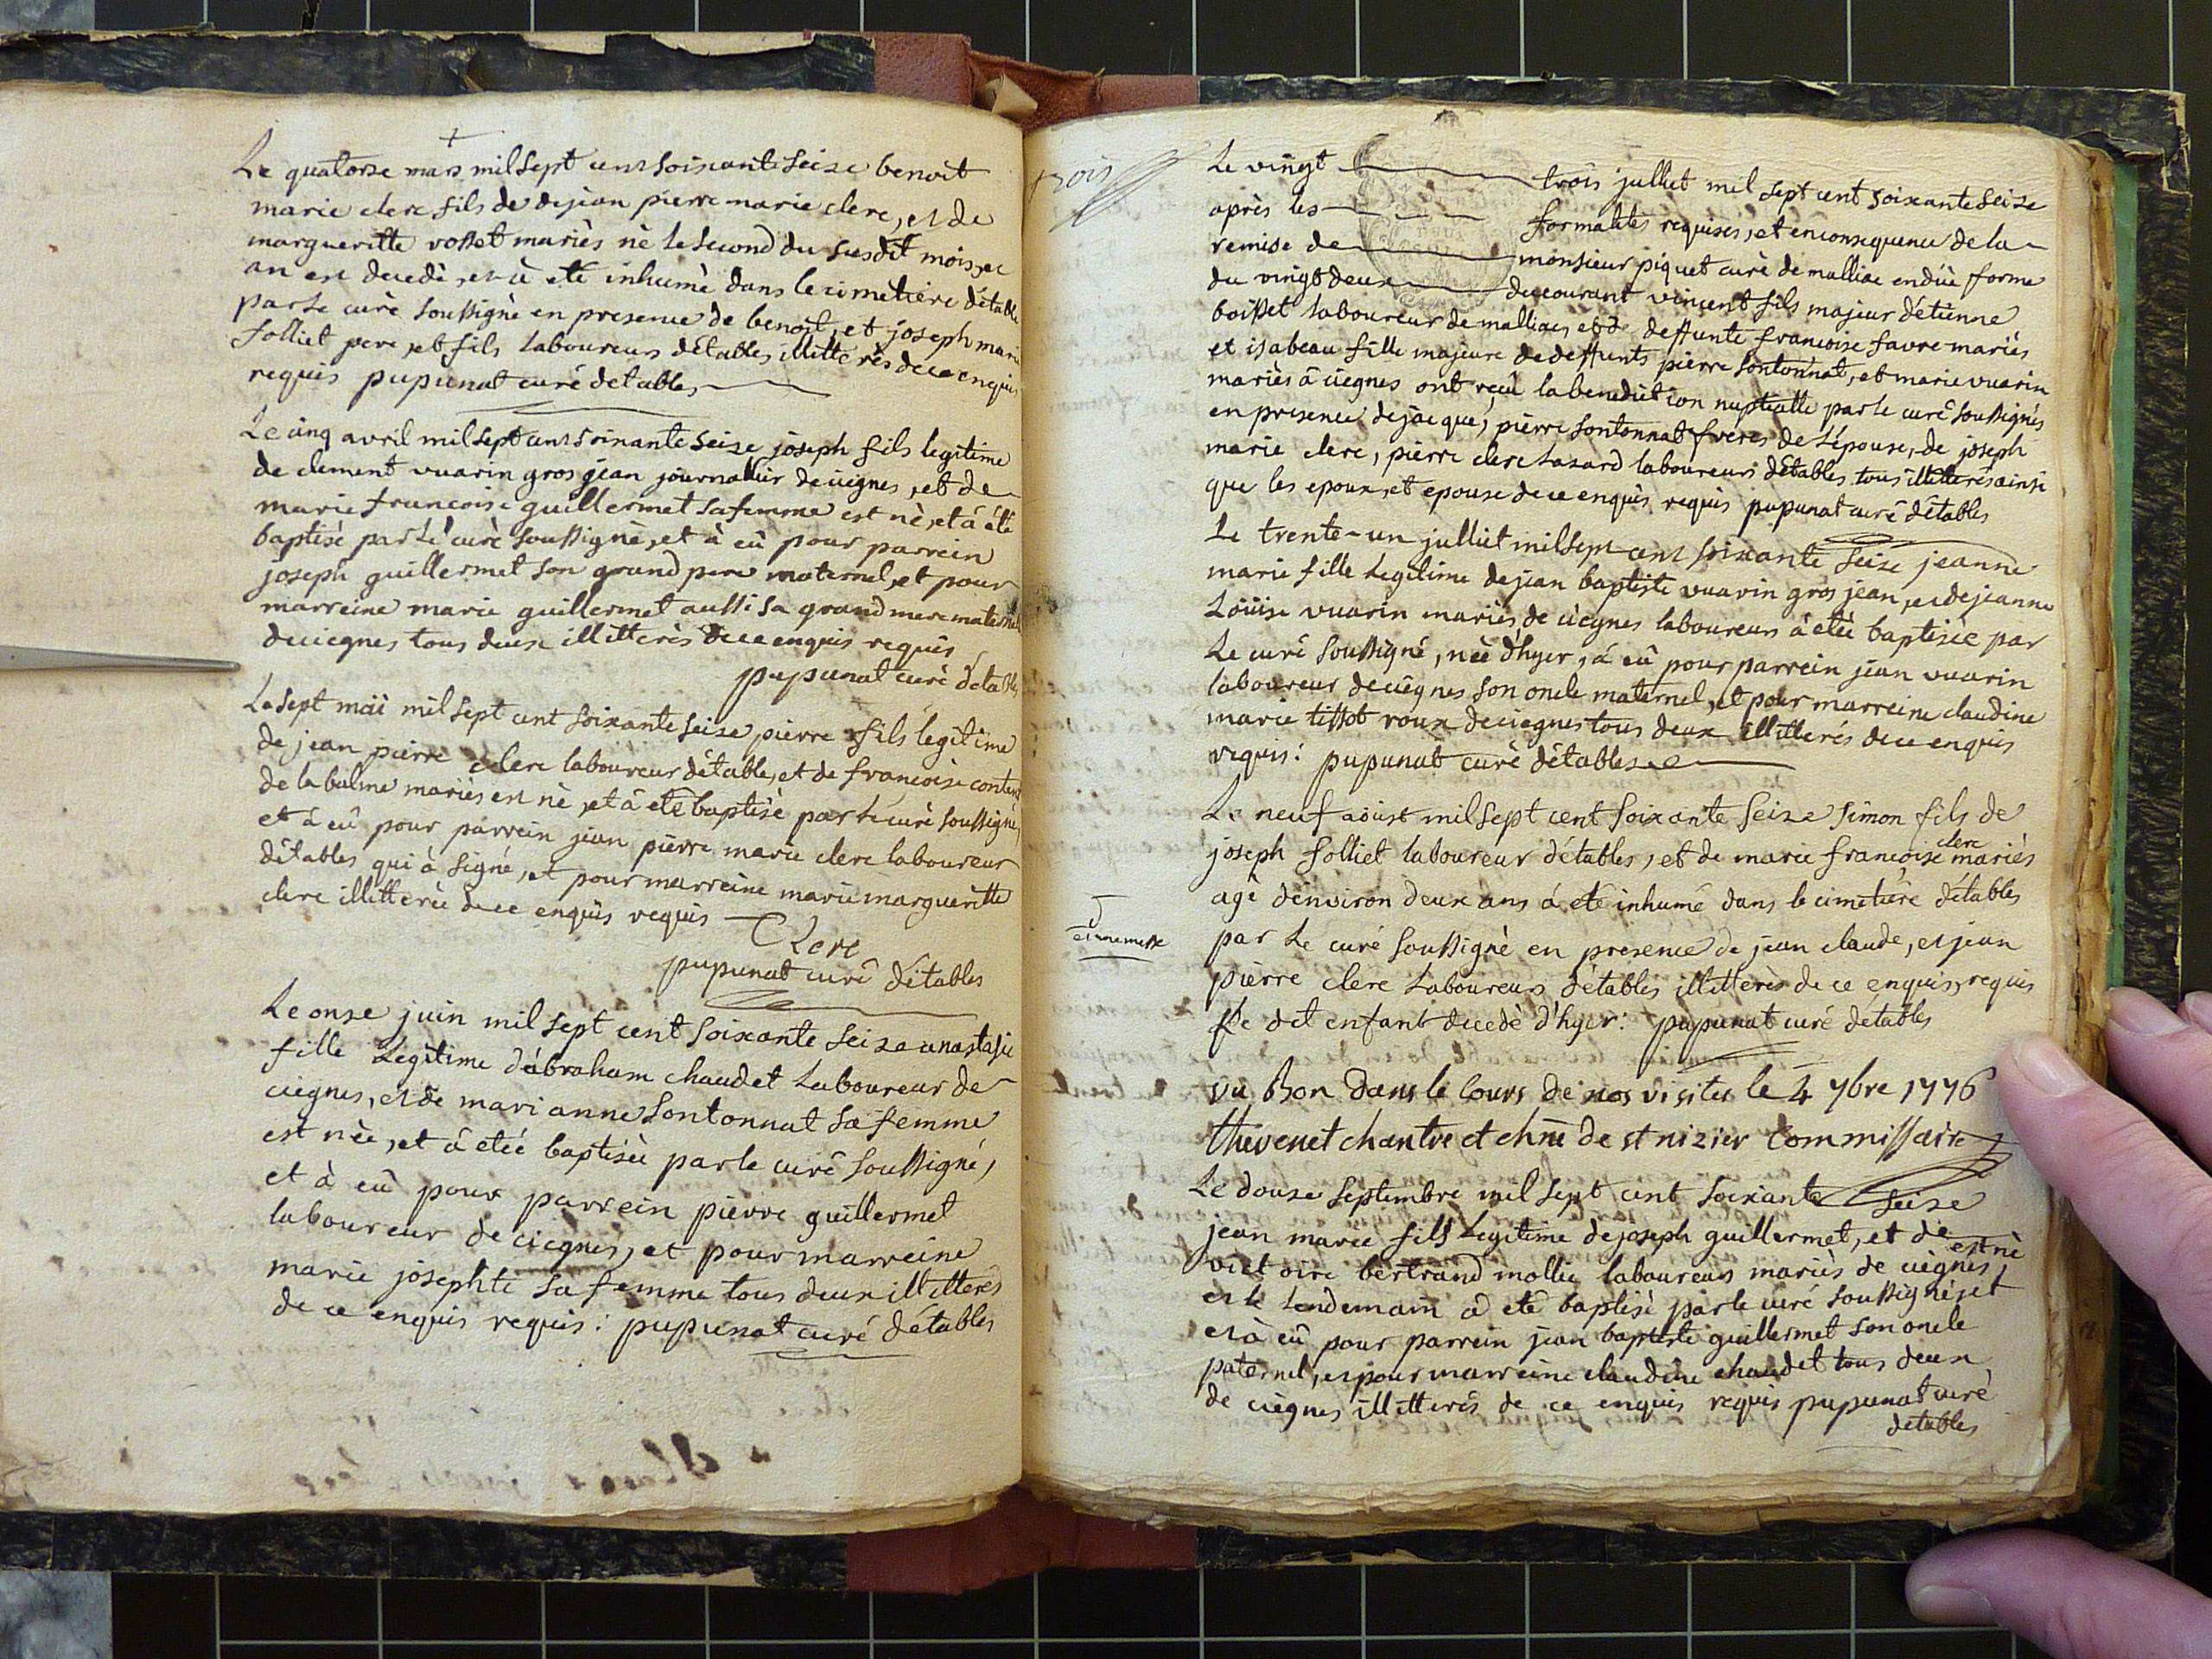 +
Le quatorse mars mil sept cent soixante seise benoit
marie clerc fils de dejean pierre marie clerc, et de
margueritte vosset mariès nè le second du susdit mois, et
an est decedè, et à etè inhumè dans le cimetière d'etable
par le curè soussignè en presence de benoit, et joseph marie
folliet pere, et fils laboureurs d'etables, illitterès de ce enquis
requis pupunat curé detables,
Le cinq avril mil sept cent soixante seise joseph fils legitime
de clement vuarin gros jean journallier de ciegnes, et de
marie francoise guillermet sa femme est nè, et à été
baptisè par le curè soussignè, et à eû pour parrein
joseph guillermet son grand pere maternel, et pour
marreine marie guillermet aussi sa grand mere maternel
de ciegnes tous deux illitterès de ce enquis requis
pupunat curè detables
Le sept maii mil sept cent soixante seise pierre fils legitime
de jean pierre clerc laboureur d'étables, et de francoise content
de la balme mariès est nè, et à etè baptisè par le curè soussignè,
et à eû pour parrein jean pierre marie clerc laboureur
détables qui à signé, et pour marreine marie margueritte
clerc illitterèe de ce enquis requis
Clerc
pupunat curè détables
Le onse juin mil sept cent soixante seise anastasie
fille legitime d'abraham chaudet laboureur de
ciegnes, et de marianne sontonnat sa femme
est nèe, et à etèe baptisèe par le curé soussigné,
et à eû pour parrein pierre guillermet
laboureur de ciegnes, et pour marreine
marie josephte sa femme tous deux illitterés
de ce enquis requis: pupunat curé détables
trois
Le vingt trois julliet mil sept cent soixante seise
après les formalités requises, et en consequence de la
remise de monsieur piquet curè de malliac en düe forme
du vingt deux du courant vincent fils majeur d'etienne
boisset laboureur de malliac, et de deffunte francoise favre mariès
et isabeau fille majeure de deffunts pierre sontonnat, et marie vuarin
mariès à ciegnes ont reçû la benediction nuptialle par le curé soussignés
en presence de jacque, pierre sontonnat freres de l'épouse, de joseph
marie clerc, pierre clerc lasard laboureurs détables, tous illitterés ainsi
que les epoux, et epouse de ce enquis requis pupunat curé détables
Le trente-un julliet mil sept cent soixante seise jeanne
marie fille legitime de jean baptiste vuarin gros jean, et de jeanne
Loüise vuarin mariès, de ciegnes laboureurs à etèe baptisèe par
Le curé soussigné, nèe d'hyer, à eû pour parrein jean vuarin
laboureur de ciegnes son oncle maternel, et pour marreine claudine
marie tissot roux de ciegnes tous deux illitterés de ce enquis
requis: pupunat curè détables
Le neuf aoust mil sept cent soixante seise simon fils de
joseph folliet laboureur d'étables, et de marie francoise clerc mariès
agè d'environ deux ans à etè inhumé dans le cimetière d'étables
par le curé soussignè en presence de jean claude, et jean
pierre clerc laboureurs d'etables illitterès de ce enquis, requis
Le dit enfant decedè d'hyer: pupunat curé détables
et une messe
vu Bon dans le cours de nos visites le 4 7bre 1776
Thevenet chantre et chne de st nizier commissaire
Le douse septembre mil sept cent soixante seise
jean marie fils legitime de joseph guillermet, et de
victoire bertrand mollie laboureurs mariès de ciegnes, est nè
et le lendemain à etè baptisè par le curé soussigné, et
et à eû pour parrein jean baptiste guillermet son oncle
paternel, et pour marreine claudine chaudet tous deux
de ciegnes illitterés de ce enquis requis pupunat curé
detables